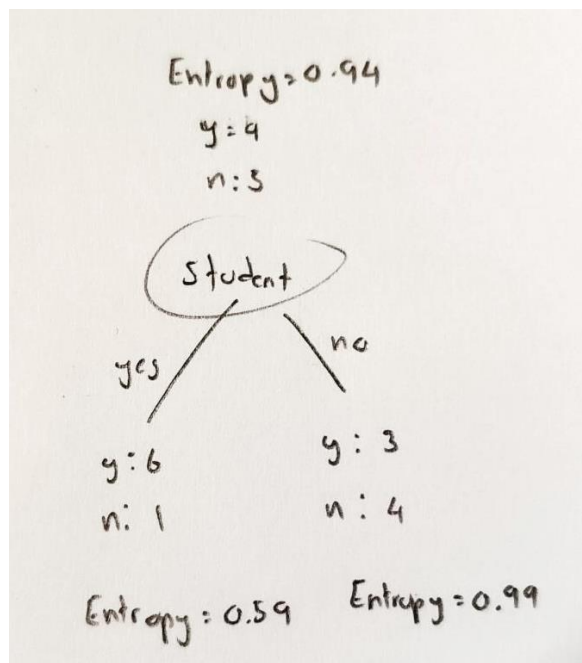 Entropy = 0.94
y: 9
n: 5
Student
yes no
y: 6 y: 3
n: 1 n: 4
Entropy = 0.59 Entropy = 0.99